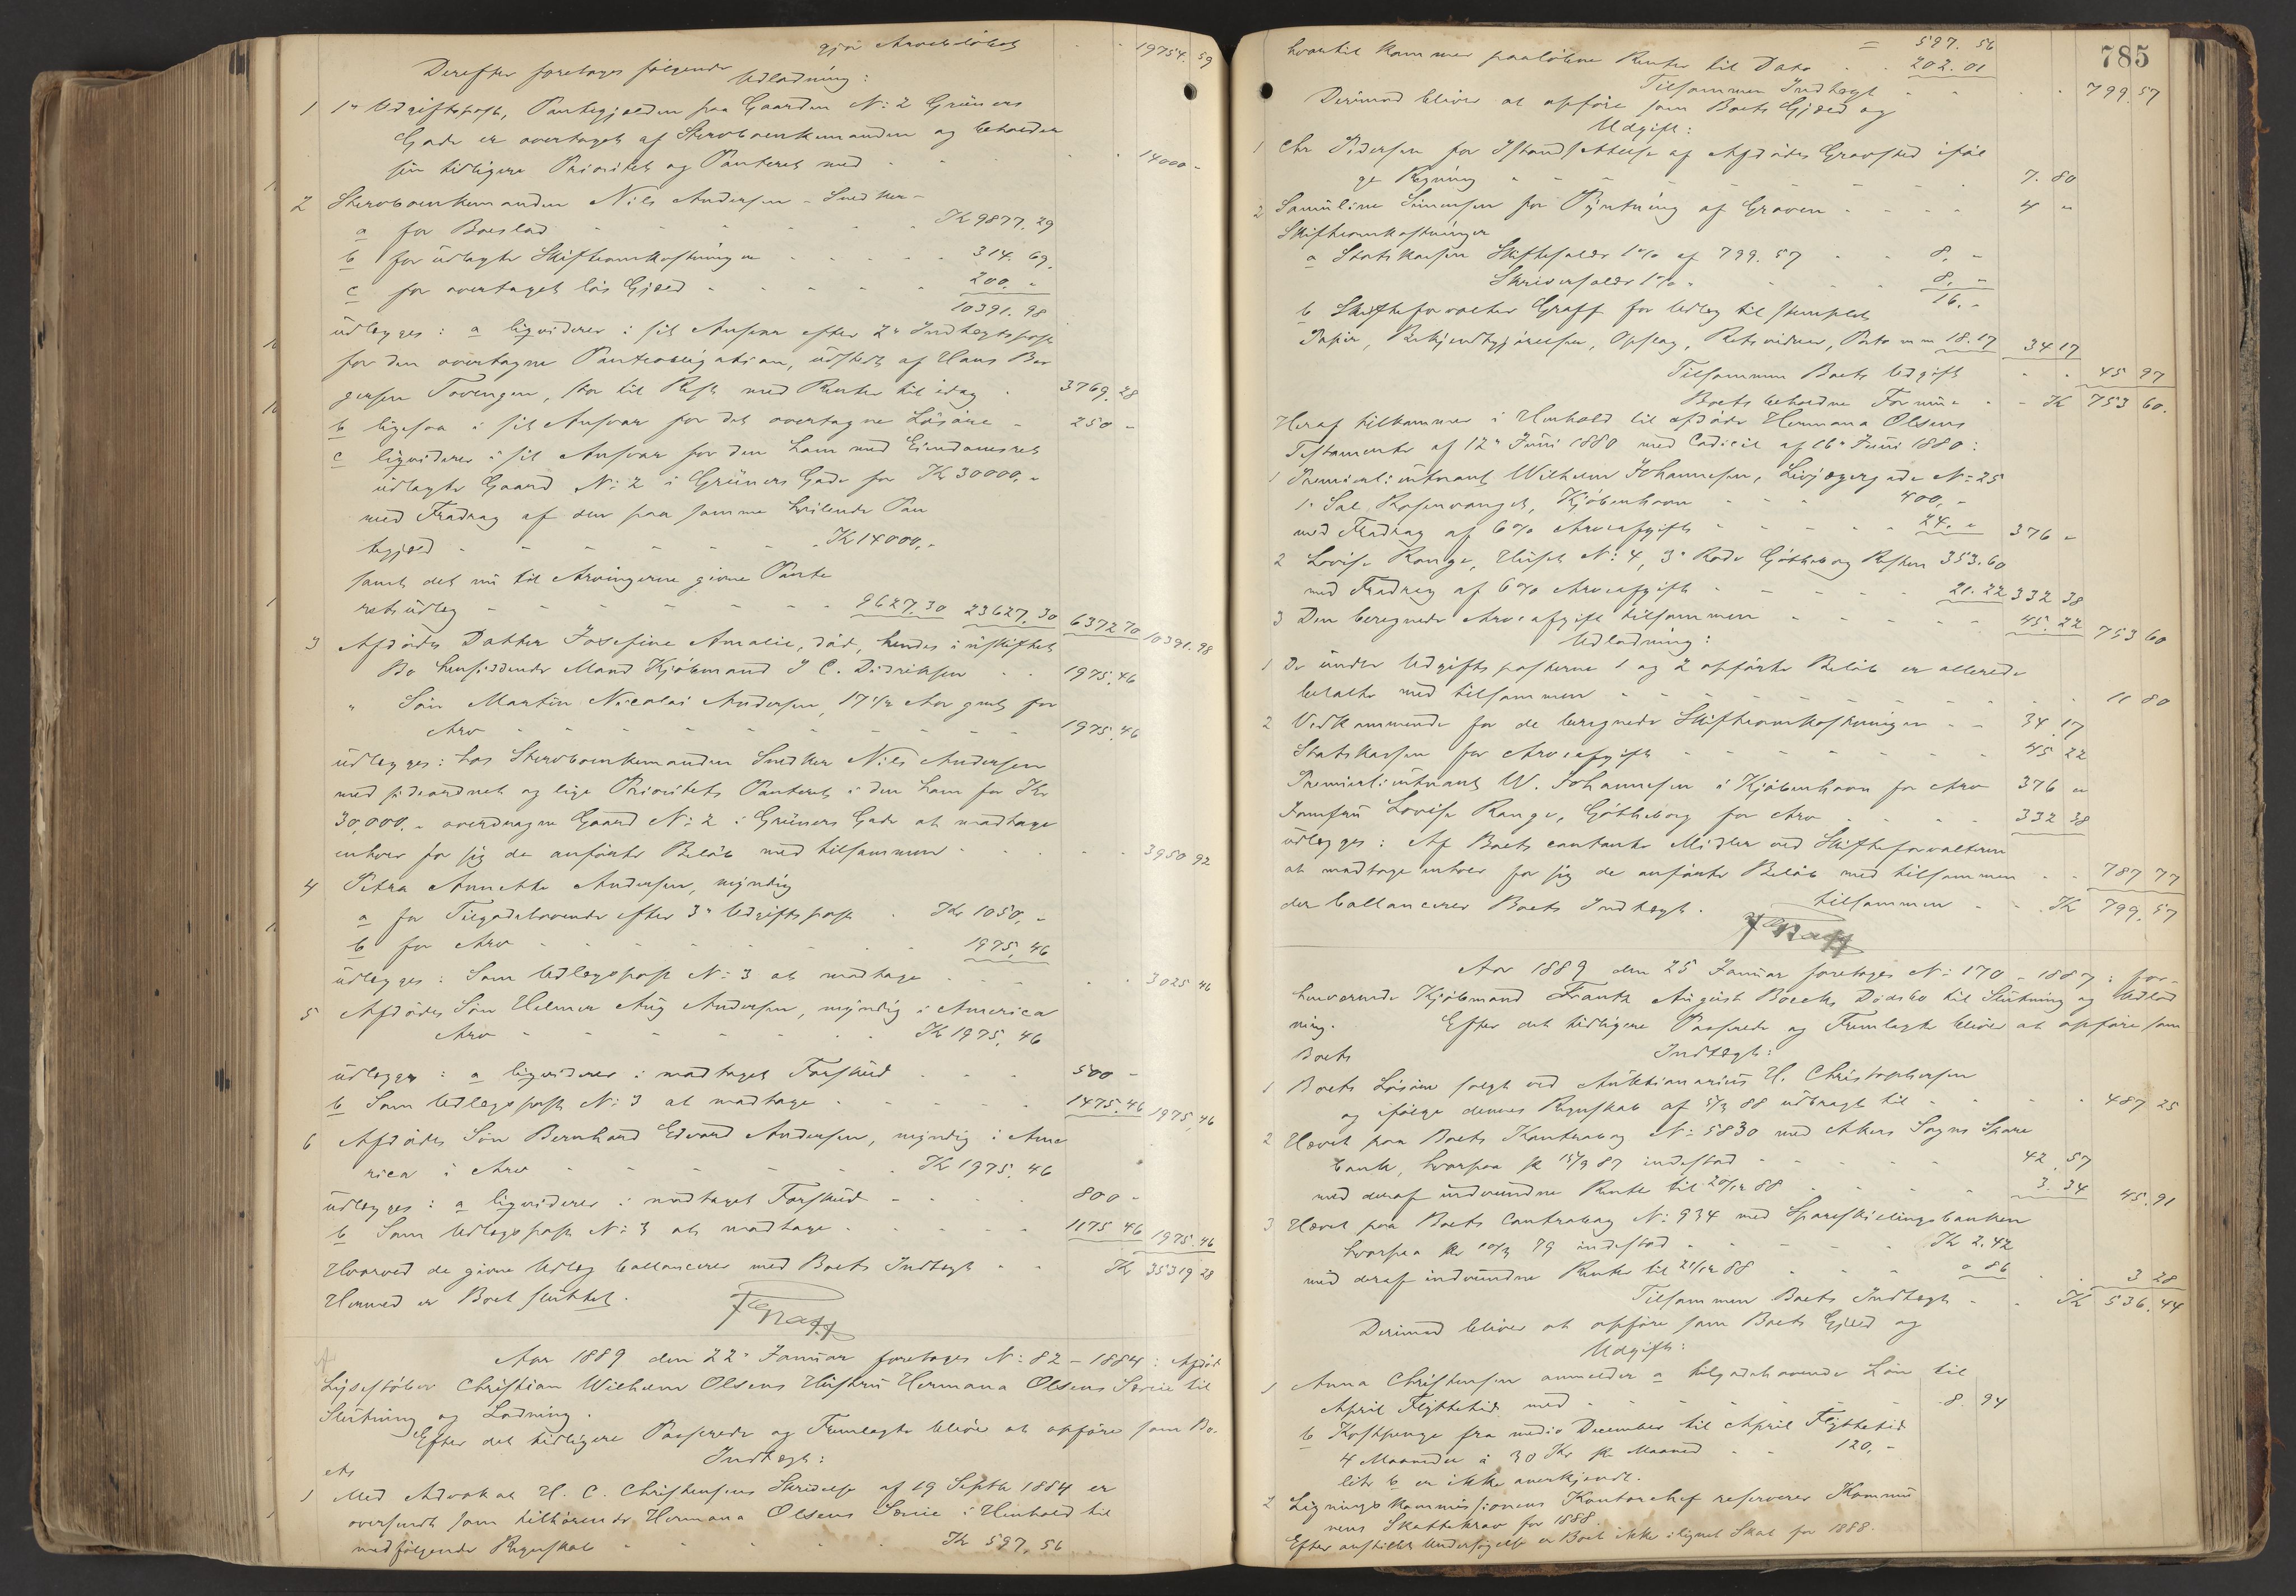 gjør Arvebeløbet - - 19754.59
Derefter foretages følgende
Udlodning:
1 1ste Udgiftspost, Pantegjælden paa Gaarden No: 2 Grüners
Gade er overtaget af Sterboenkemanden og beholder
sin tidligere Prioritet og Panteret med - - - - 14000 -
2 Sterboenkemanden Nils Andersen - Snedker -
a for Boeslod - - - - - Kr 9877.29
b for udlagte Skifteomkostninger - - - - 314.69
c for overtaget løs Gjæld - - - - - 200.-
10391.98
udlægges: a liqviderer i sit Ansvar efter 2den Indtægtspost
for den overtagne Panteobligation, udstedt af Hans Bor
gersen Tovengen, stor til Rest med Renter til idag - 3769.28
b ligesaa i sit Ansvar for det overtagne Løsøre - 250 -
c liqviderer i sit Ansvar for den ham med Eiendomsret
udlagte Gaard No: 2 i Grüners Gade for Kr 30000.-
med Fradrag af den paa samme hvilende Pan
tegjæld - - - - - - Kr 14000.-
samt det nu til Arvingerne givne Pante
retsudlæg - - - - - - 9627.30 23627.30 6372 70 10391.98
3 Afdødes Datter Josefine Amalie, død, hendes i uskiftet
Bo hensiddende Mand Kjøbmand J C. Didriksen - - 1975.46
" Søn Martin Nicolai Andersen, 17 1/2 Aar gml for
Arv - - - - - - - - 1975.46
udlægges: hos Sterboenkemanden Snedker Nils Andersen
med sideordnet og lige Prioritets Panteret i den ham for Kr
30,000.- overdragne Gaard No: 2 i Grüners Gade at modtage
enhver for sig de anførte Beløb med tilsammen - - - - 3950 92
4 Petra Annette Andersen, myndig
a for Tilgodehavende efter 3die Udgiftspost - Kr 1050.-
b for Arv - - - - - - 1975.46
udlægges: Som Udlægspost No: 3 at modtage - - - - - 3025 46
5 Afdødes Søn Helmer Aug Andersen, myndig i America
Arv - - - - - - Kr 1975.46
udlægges: a liqviderer i modtaget Forskud - - - 500 -
b Som Udlægspost No: 3 at modtage - - - - 1475.46 1975.46
6 Afdødes Søn Bernhard Edvard Andersen, myndig i Ame
rica i Arv - - - - - Kr 1975.46
udlægges: a liqviderer i modtaget Forskud - - - 800 -
b Som Udlægspost No: 3 at modtage - - - - 1175 46 1975.46
Hvorved de givne Udlæg ballancerer med Boets Indtægt - - Kr 35319 28
Hermed er Boet sluttet.
Graff
Aar 1889 den 22de Januar foretages No: 82 - 1884: Afdøde
Lysestøber Christian Wilhelm Olsens Hustru Hermana Olsens Særeie til
Slutning og Lodning.
Efter det tidligere Passerede og Fremlagte bliver at opføre som Bo-
ets Indtægt:
1 Med Advokat H. C. Christensens Skrivelse af 19 Septbr 1884 er
oversendt som tilhørende Hermana Olsens Særeie i Henhold til
medfølgende Regnskab - - - - - Kr 597.56
785
= 597.56
hvortil kommer paaløbne Renter til Dato - - 202.01
Tilsammen Indtægt - - - - 799.57
Derimod bliver at opføre som Boets Gjæld og
Udgift:
1 Chr Pedersen for Istandsættelse af Afdødes Gravsted iføl
ge Regning - - - - - - - - - 7.80
2 Samuline Simensen for Pyntning af Graven - - - - 4 -
Skifteomkostninger
a Statskassen Skiftesalær 1% af 799.57 - - 8.-
Skriversalær 1% - - - - 8.-
16.-
b Skifteforvalter Graff for Udlæg til stemplet
Papir, Bekjendtgjørelser, Opslag, Retsvidner, Porto m m 18.17 34 17
Tilsammen Boets Udgift - - 45 97
Boets beholdne Formue - - Kr 753 60.
Heraf tilkommer i Henhold til afdøde Hermana Olsens
Testamente af 12te Juni 1880 med Codicil af 16de Juni 1880:
1 Premierlieutnant Wilhelm Johannesen, Livjægergade No: 25
1ste Sal, Rosenvænget, Kjøbenhavn - - - 400,-
med Fradrag af 6% Arveafgift - - - - 24.- 376 -
2 Lovise Range, Huset No: 4, 3die Rode Gøtheborg Resten 353.60
med Fradrag af 6% Arveafgift - - - - 21.22 332 38
3 Den beregnede Arveafgift tilsammen - - - - 45.22 753 60
Udlodning:
1 De under Udgiftsposterne 1 og 2 opførte Beløb er allerede
betalte med tilsammen - - - - - - - - 11 80
2 Vedkommende for de beregnede Skifteomkostninger - - 34.17
Statskassen for Arveafgift - - - - - - 45 22
Premierlieutnant W. Johannesen i Kjøbenhavn for Arv 376 -
Jomfru Lovise Range, Gøtheborg for Arv - - - - 332 38
udlægges: Af Boets contante Midler ved Skifteforvalteren
at modtage enhver for sig de anførte Beløb med tilsammen - - 787 77
der ballancerer Boets Indtægt. tilsammen - - Kr 799.57
Graff
Aar 1889 den 25 Januar foretages No: 170 - 1887: for-
henværende Kjøbmand Frantz August Boecks Dødsbo til Slutning og Udlod
ning. Efter det tidligere Passerede og Fremlagte bliver at opføre som
Boets Indtægt:
1 Boets Løsøre solgt ved Auktionarius H. Christophersen
og ifølge dennes Regnskab af 5/3 88 udbragt til - - - - 487 25
2 Hævet paa Boets Contrabog No: 5830 med Akers Sogns Spare
bank, hvorpaa pr 15/9 87 indestod - - - - - 42.57
med deraf indvundne Renter til 20/12 88 - - - - 3.34 45.91
3 Hævet paa Boets Contrabog No: 934 med Spareskillingsbanken
hvorpaa pr 10/3 79 indestod - - - - Kr 2.42
med deraf indvundne Renter til 21/12 88 - - - 0 86 - - 3 28
Tilsammen Boets Indtægt - - Kr 536.44
Derimod bliver at opføre som Boets Gjæld og
Udgift:
1 Anna Christensen anmelder a tilgodehavende Løn til
April Flyttetid med - - - - - - - 8.94
b Kostpenge fra medio December til April Flyttetid
4 Maaneder à 30 Kr pr Maaned - - 120,-
litr b er ikke anerkjendt.
2 Ligningskommissionens Kontorchef reserverer Kommu
nens Skattekrav for 1888.
Efter anstillet Undersøgelse er Boet ikke ilignet Skat for 1888.